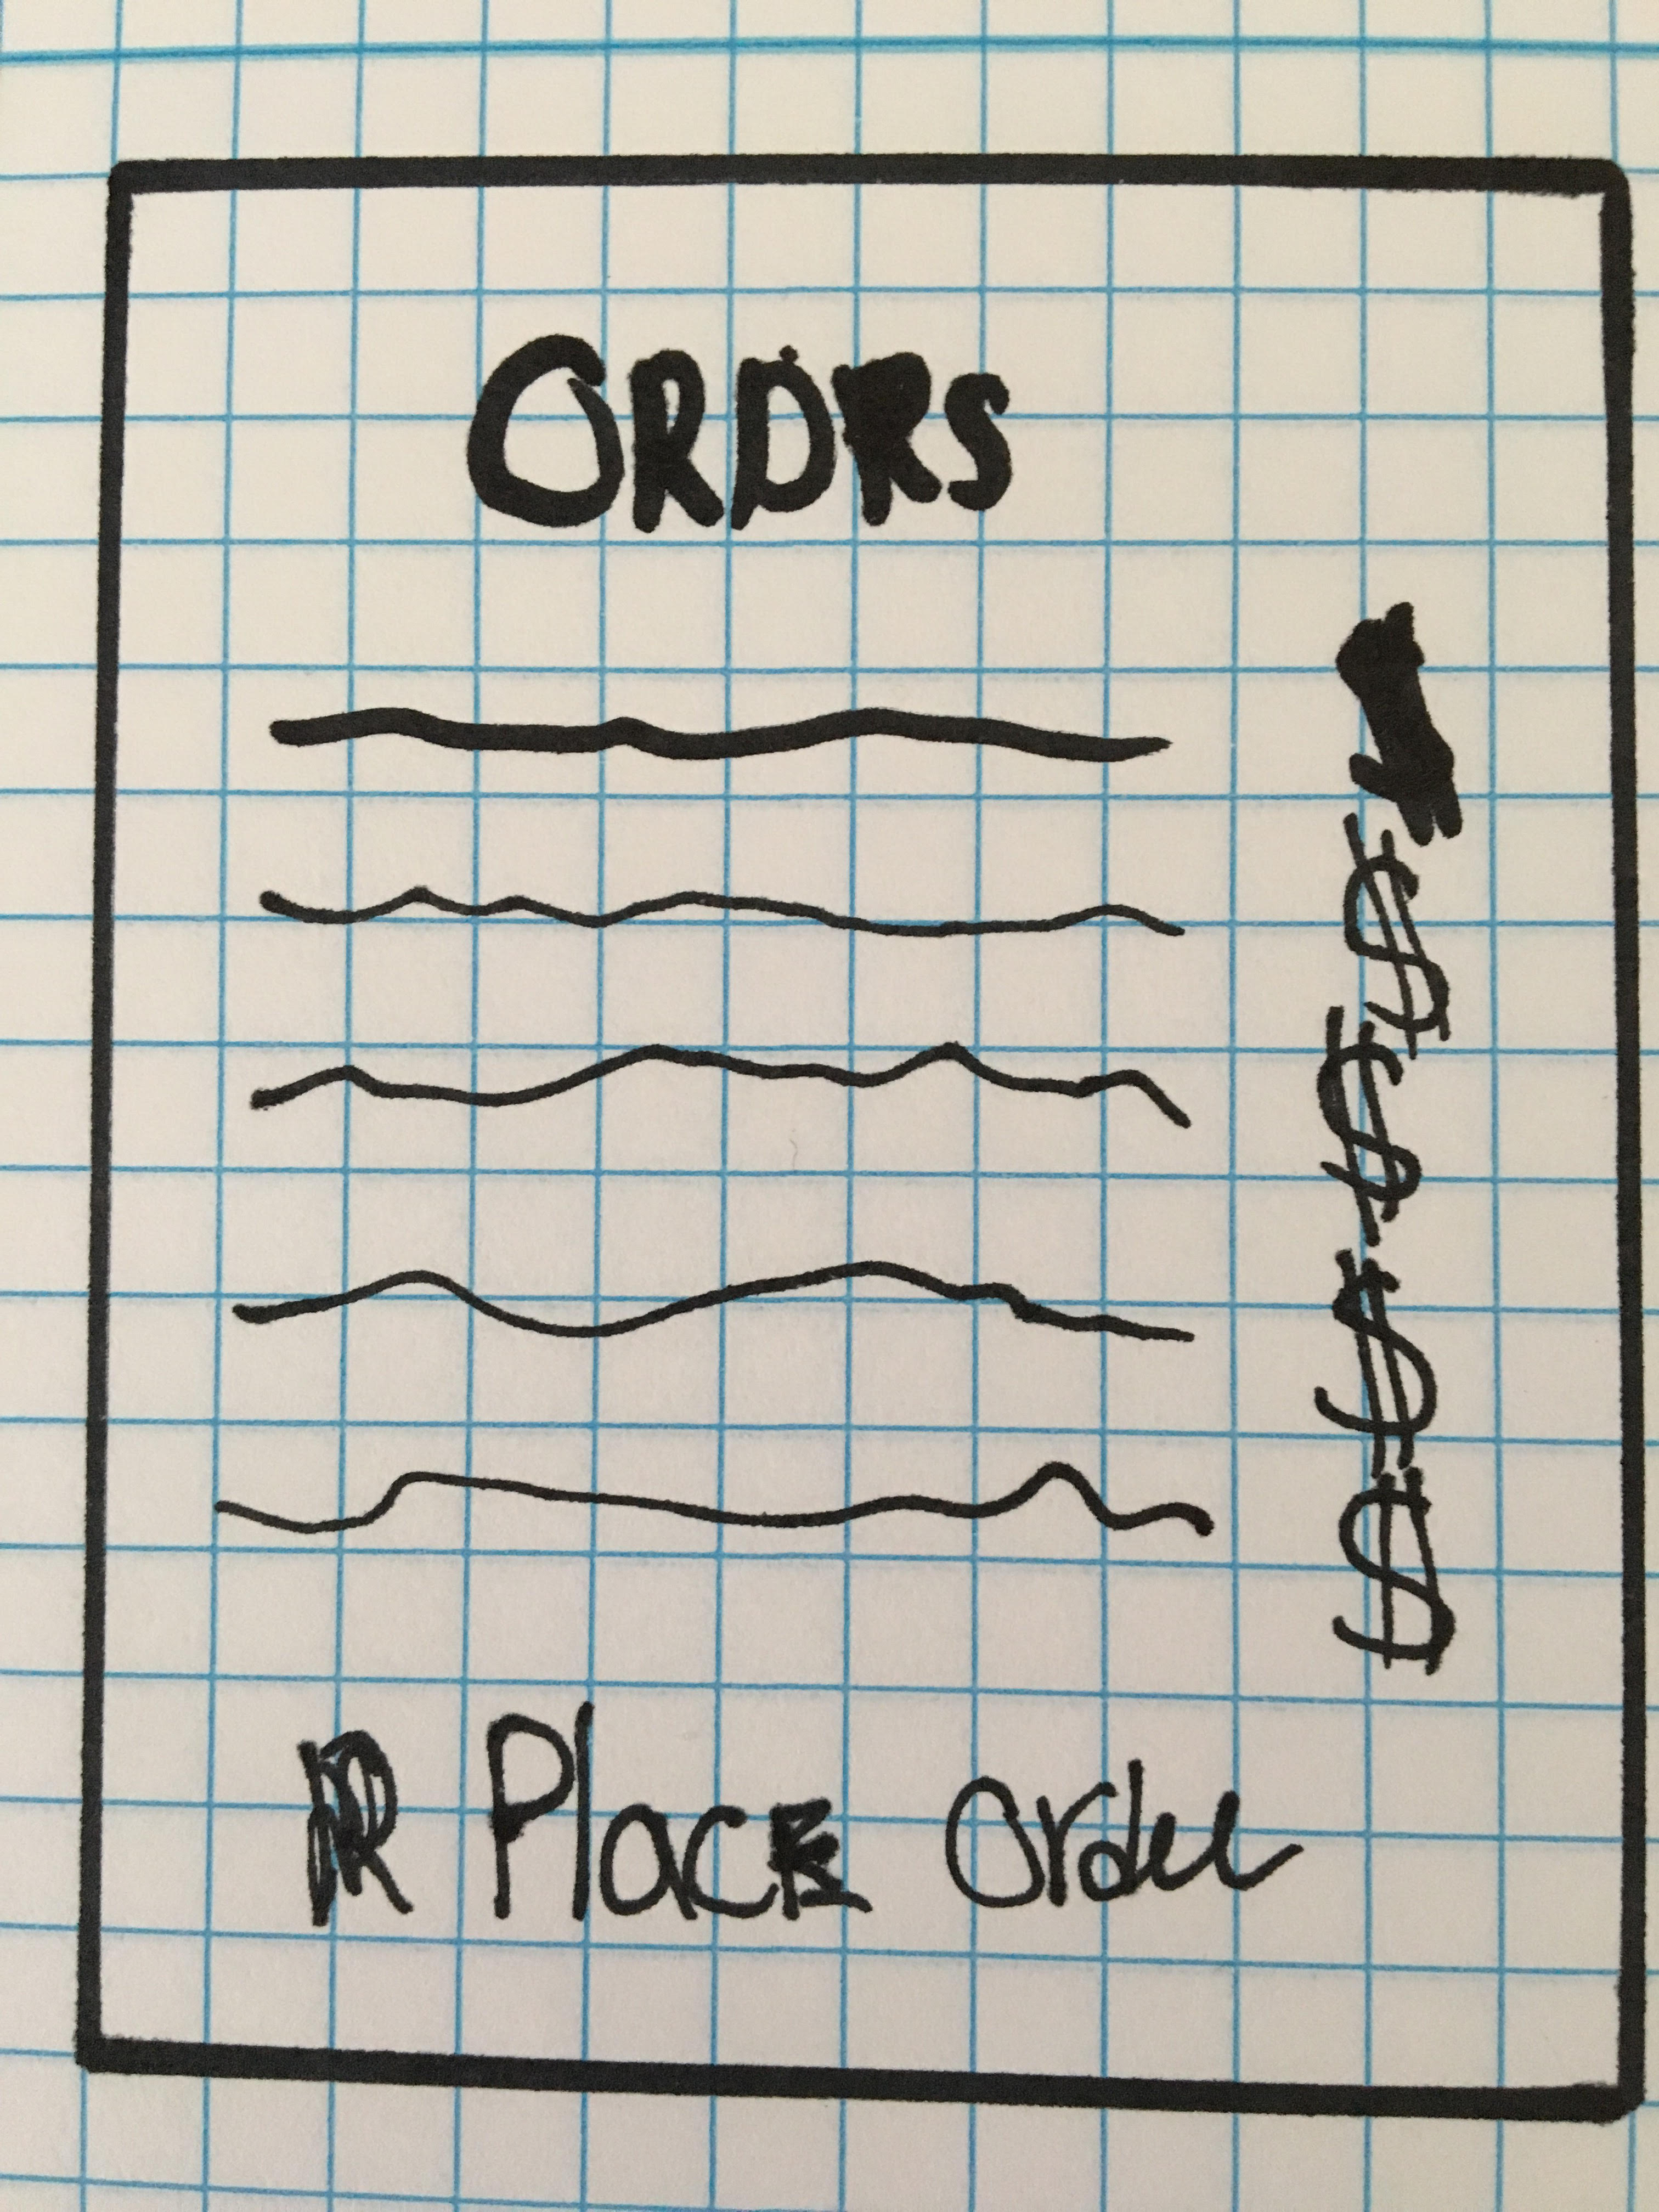 ORDRS
$
$
$
$
Place Order